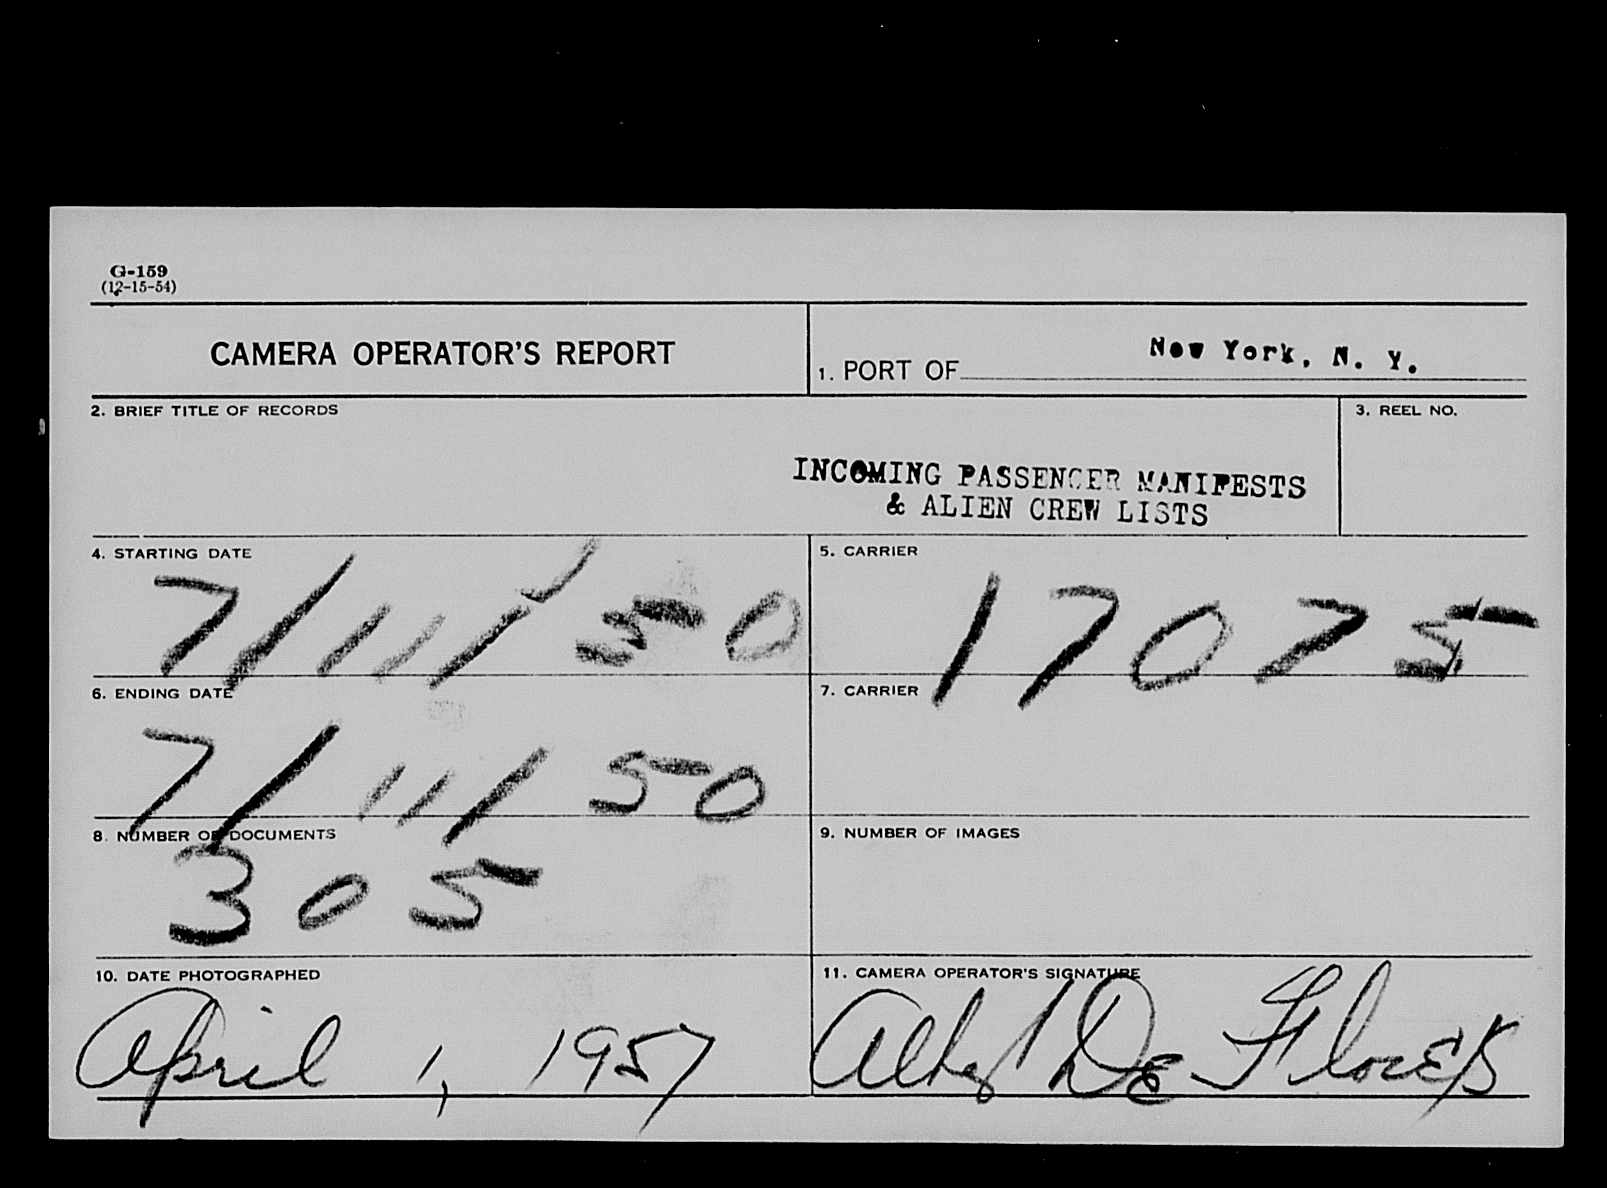 G-159
(12-15-54)
CAMERA OPERATOR'S REPORT
1. PORT OF New York, N. Y.
2. BRIEF TITLE OF RECORDS
3. REEL NO.
INCOMING PASSENGER MANIFESTS
& ALIEN CREW LISTS
4. STARTING DATE
7/11/50
5. CARRIER
17075
6. ENDING DATE
7/11/50
7. CARRIER
8. NUMBER OF DOCUMENTS
305
9. NUMBER OF IMAGES
10. DATE PHOTOGRAPHED
April 1, 1957
11. CAMERA OPERATOR'S SIGNATURE
De Flores